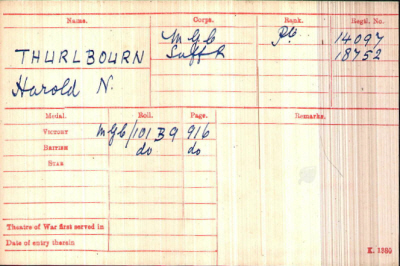 Name. Corps. Rank. Regtl. No.
THURLBOURN M.G.C Pte. 14097
Harold N. Suff R 18752
Medal. Roll. Page. Remarks.
VICTORY MGC/101 B9 916
BRITISH do do
STAR
Theatre of War first served in
Date of entry therein
K. 1380